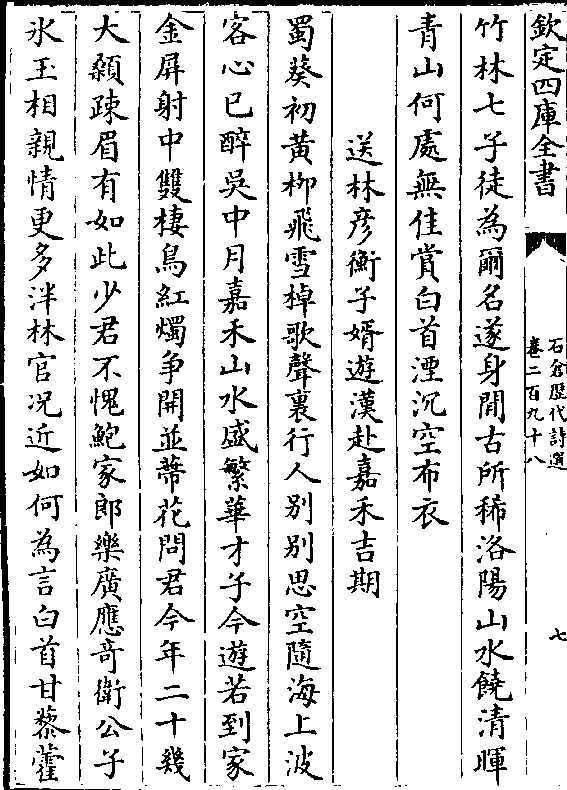 欽定四庫全書
石倉歴代詩選
卷二百九十八
七
竹林七子徒為爾名遂身閒古所稀洛陽山水饒清暉
青山何處無佳賞白首湮沉空布衣
送林彦衡子婿遊漢赴嘉禾吉期
蜀葵初黄栁飛雪棹歌聲裏行人别别思空隨海上波
客心已醉吳中月嘉禾山水盛繁華才子今遊若到家
金屏射中雙棲鳥紅燭争開並蔕花問君今年二十幾
大顙踈眉有如此少君不愧鮑家郎樂廣應竒衛公子
氷玉相親情更多泮林官况近如何為言白首甘藜藿